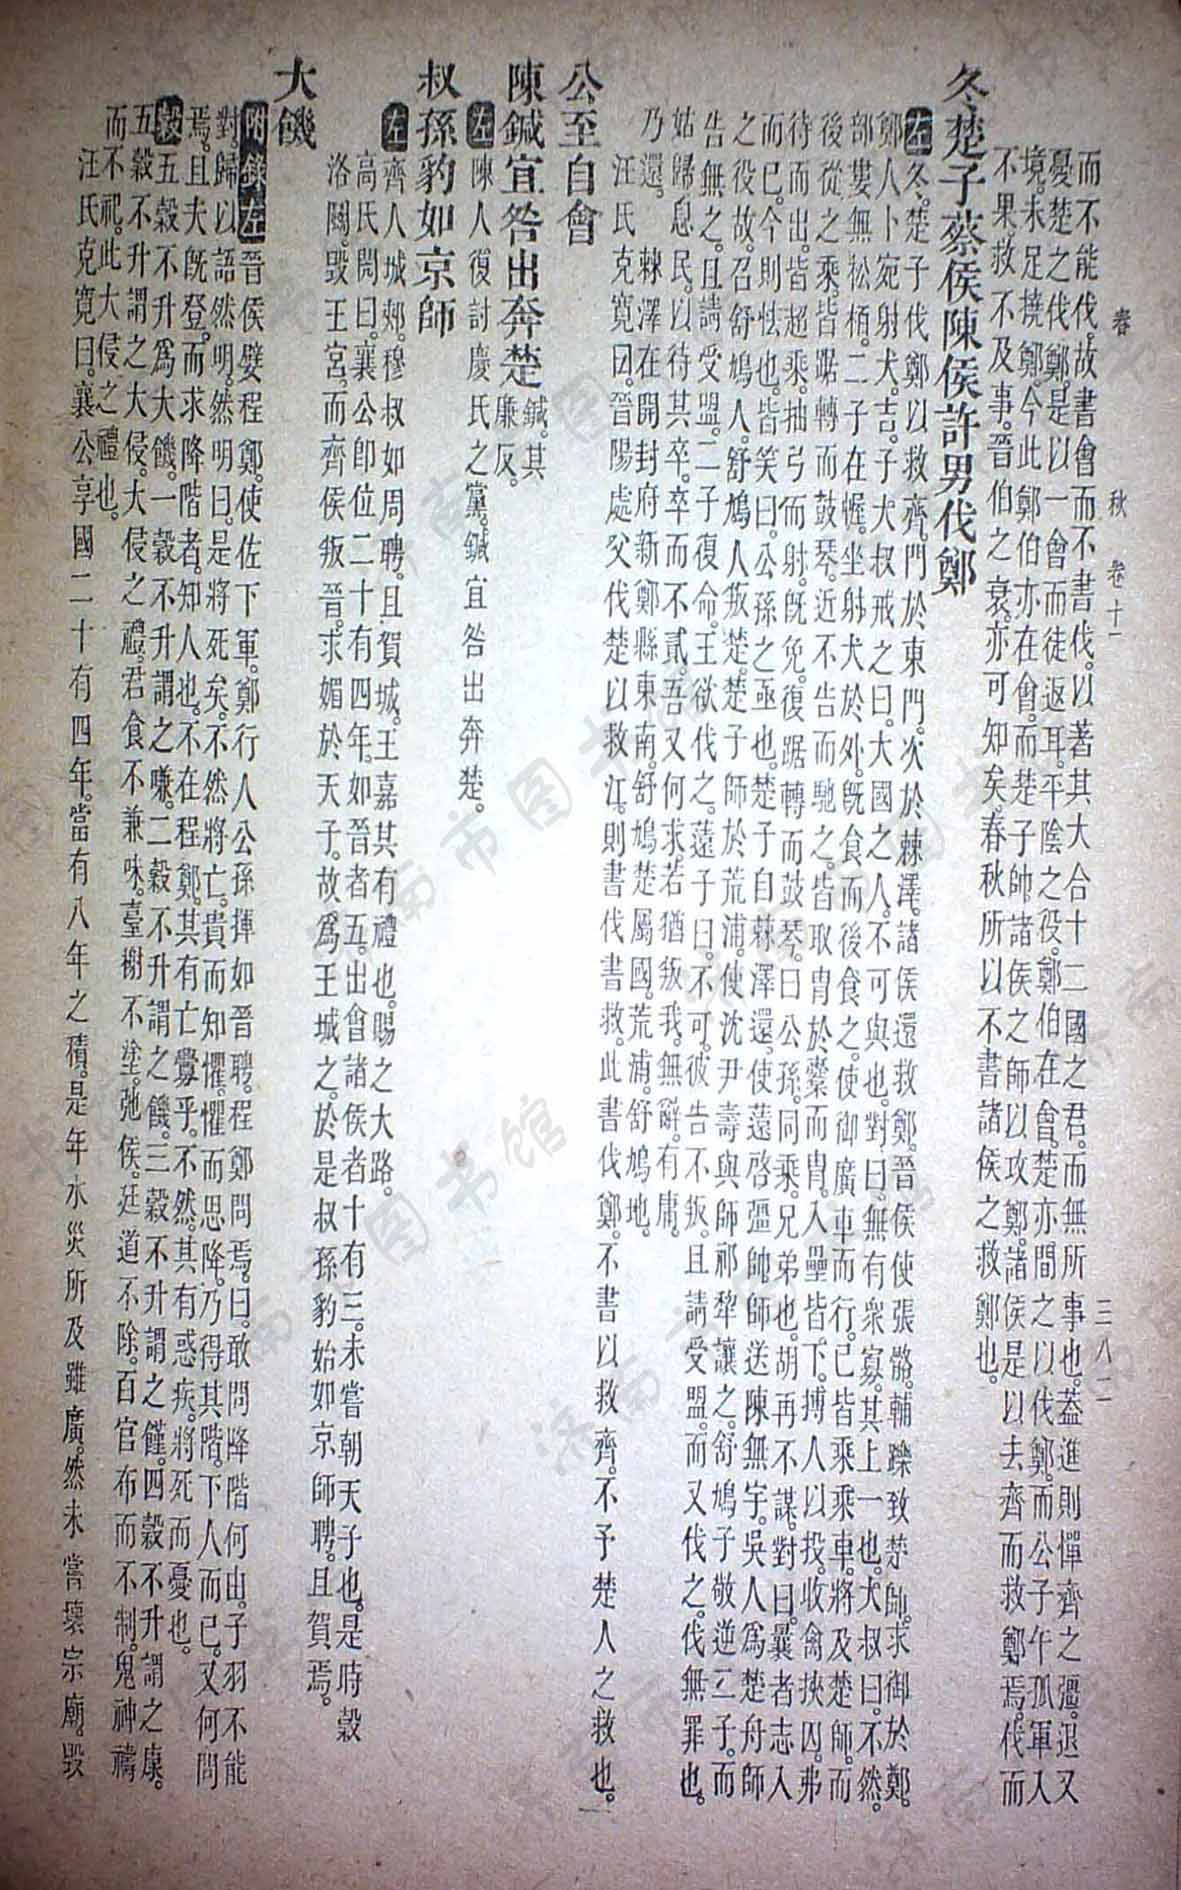 春 秋 卷十一 三八二
而不能伐。故書會而不書伐。以著其大合十二國之君。而無所事也。蓋進則憚齊之彊。退又
憂楚之伐鄭。是以一會而徒返耳。平陰之役。鄭伯在會。楚亦間之以伐鄭。而公子午孤軍入
境。未足撓鄭。今此鄭伯亦在會。而楚子帥諸侯之師以攻鄭。諸侯是以去齊而救鄭焉。伐而
不果。救不及事。晉伯之衰。亦可知矣。春秋所以不書諸侯之救鄭也。
冬楚子蔡侯陳侯許男伐鄭
左 冬。楚子伐鄭以救齊。門於東門。次於棘澤。諸侯還救鄭。晉侯使張骼。輔躒致楚師。求御於鄭。
鄭人卜宛射犬。吉。子大叔戒之曰。大國之人。不可與也。對曰。無有衆寡。其上一也。大叔曰。不然。
部婁無松栢。二子在幄。坐射犬於外。旣食而後食之。使御廣車而行。己皆乘乘車。將及楚師。而
後從之乘。皆踞轉而鼓琴。近不告而馳之。皆取胄於櫜而胄。入壘皆下。搏人以投。收禽挾囚。弗
待而出。皆超乘。抽弓而射。旣免。復踞轉而鼓琴。曰公孫。同乘。兄弟也。胡再不謀。對曰。曩者志入
而已。今則怯也。皆笑曰。公孫之亟也。楚子自棘澤還。使薳啓彊帥師送陳無宇。吳人爲楚舟師
之役故。召舒鳩人。舒鳩人叛楚。楚子師於荒浦。使沈尹壽與師祁犂讓之。舒鳩子敬逆二子。而
告無之。且請受盟。二子復命。王欲伐之。薳子曰。不可。彼告不叛。且請受盟。而又伐之。伐無罪也。
姑歸息民。以待其卒。卒而不貳。吾又何求。若猶叛我。無辭。有庸。
乃還。 棘澤在開封府新鄭縣東南。舒鳩楚屬國。荒浦。舒鳩地。
汪氏克寬曰。晉陽處父伐楚以救江。則書伐書救。此書伐鄭。不書以救齊。不予楚人之救也。
公至自會
陳鍼宜咎出奔楚 鍼。其廉反。
左 陳人復討慶氏之黨。鍼宜咎出奔楚。
叔孫豹如京師
左 齊人城郟。穆叔如周聘。且賀城。王嘉其有禮也。賜之大路。
高氏閌曰。襄公卽位二十有四年。如晉者五。出會諸侯者十有三。未嘗朝天子也。是時穀
洛鬭。毀王宮。而齊侯叛晉。求媚於天子。故爲王城之。於是叔孫豹始如京師聘。且賀焉。
大饑
附錄左 晉侯嬖程鄭。使佐下軍。鄭行人公孫揮如晉聘。程鄭問焉。曰。敢問降階何由。子羽不能
對。歸以語然明。然明曰。是將死矣。不然將亡。貴而知懼。懼而思降。乃得其階。下人而已。又何問
焉。且夫旣登。而求降階者。知人也。不在程鄭。其有亡釁乎。不然。其有惑疾。將死而憂也。
穀 五穀不升爲大饑。一穀不升謂之嗛。二穀不升謂之饑。三穀不升謂之饉。四穀不升謂之康。
五穀不升謂之大侵。大侵之禮。君食不兼味。臺榭不塗。弛侯。廷道不除。百官布而不制。鬼神禱
而不祀。此大侵之禮也。
汪氏克寬曰。襄公享國二十有四年。當有八年之積。是年水災所及雖廣。然未嘗壞宗廟。毀